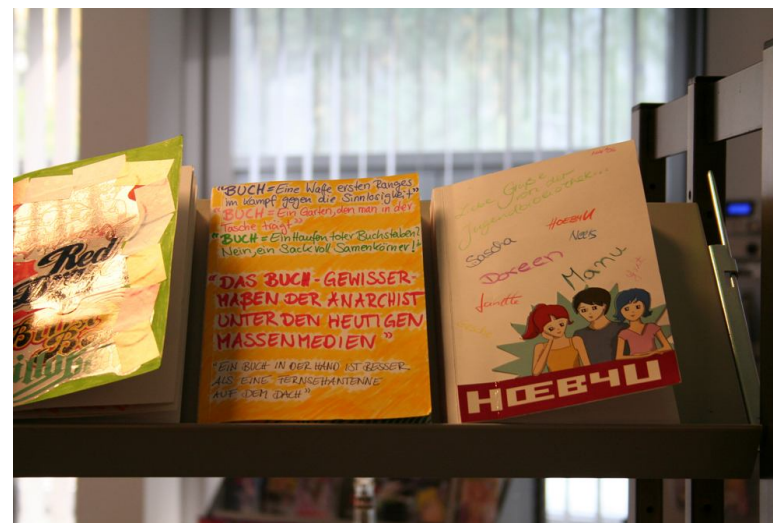 Red
"BUCH = Eine Waffe ersten Ranges
im Kampf gegen die Sinnlosigkeit"
"BUCH = Ein Garten, den man in der
Tasche trägt"
"BUCH = Ein Haufen toter Buchstaben?
Nein, ein Sack voll Samenkörner!"
"DAS BUCH - GEWISSER-
MAßEN DER ANARCHIST
UNTER DEN HEUTIGEN
MASSENMEDIEN"
"EIN BUCH IN DER HAND IST BESSER
ALS EINE FERNSEHANTENNE
AUF DEM DACH"
Liebe Grüße
von der
Jugendbibliothek...
HOEB4U
Sascha
Doreen
Manu
Janette
HŒB4U